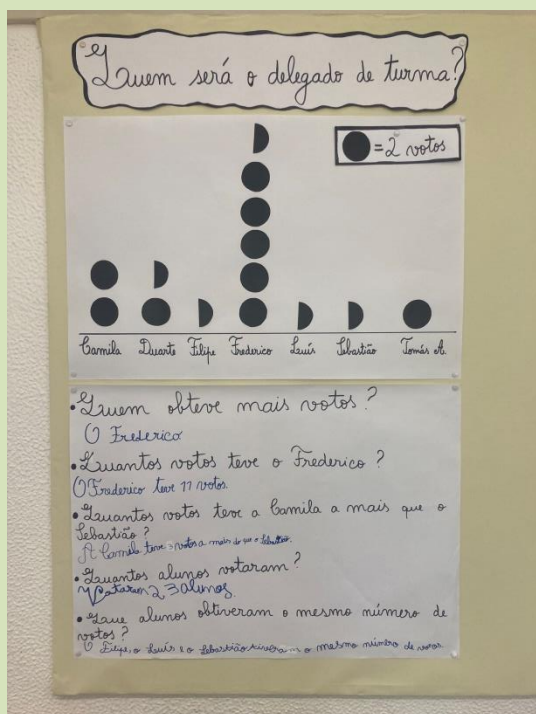 Quem será o delegado de turma?
= 2 votos
Camila Duarte Filipe Frederico Luís Sebastião Tomás A.
• Quem obteve mais votos?
O Frederico
• Quantos votos teve o Frederico?
O Frederico teve 11 votos.
• Quantos votos teve a Camila a mais que o
Sebastião?
A Camila teve 3 votos a mais do que o Sebastião.
• Quantos alunos votaram?
Votaram 23 alunos.
• Que alunos obtiveram o mesmo número de
votos?
O Filipe, o Luís e o Sebastião tiveram o mesmo número de votos.